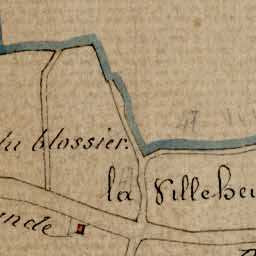 du blossier.
la Villeheu
ande